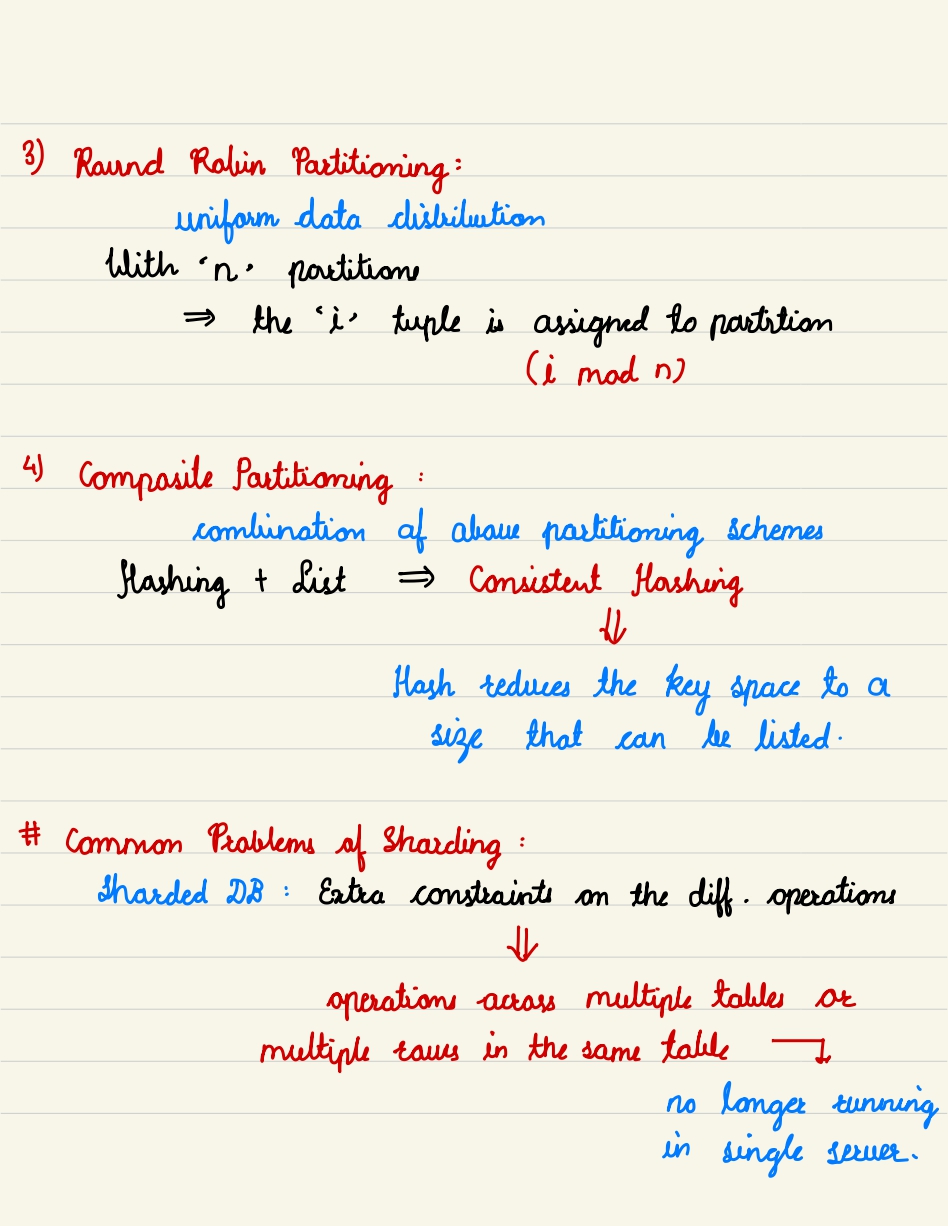 3) Round Robin Partitioning:
uniform data distribution
With 'n' partitions
⇒ the 'i' tuple is assigned to partition
(i mod n)
4) Composite Partitioning :
combination of above partitioning schemes
Hashing + List ⇒ Consistent Hashing
⇓
Hash reduces the key space to a
size that can be listed.
# Common Problems of Sharding :
Sharded DB : Extra constraints on the diff. operations
⇓
operations across multiple tables or
multiple rows in the same table ↴
no longer running
in single server.